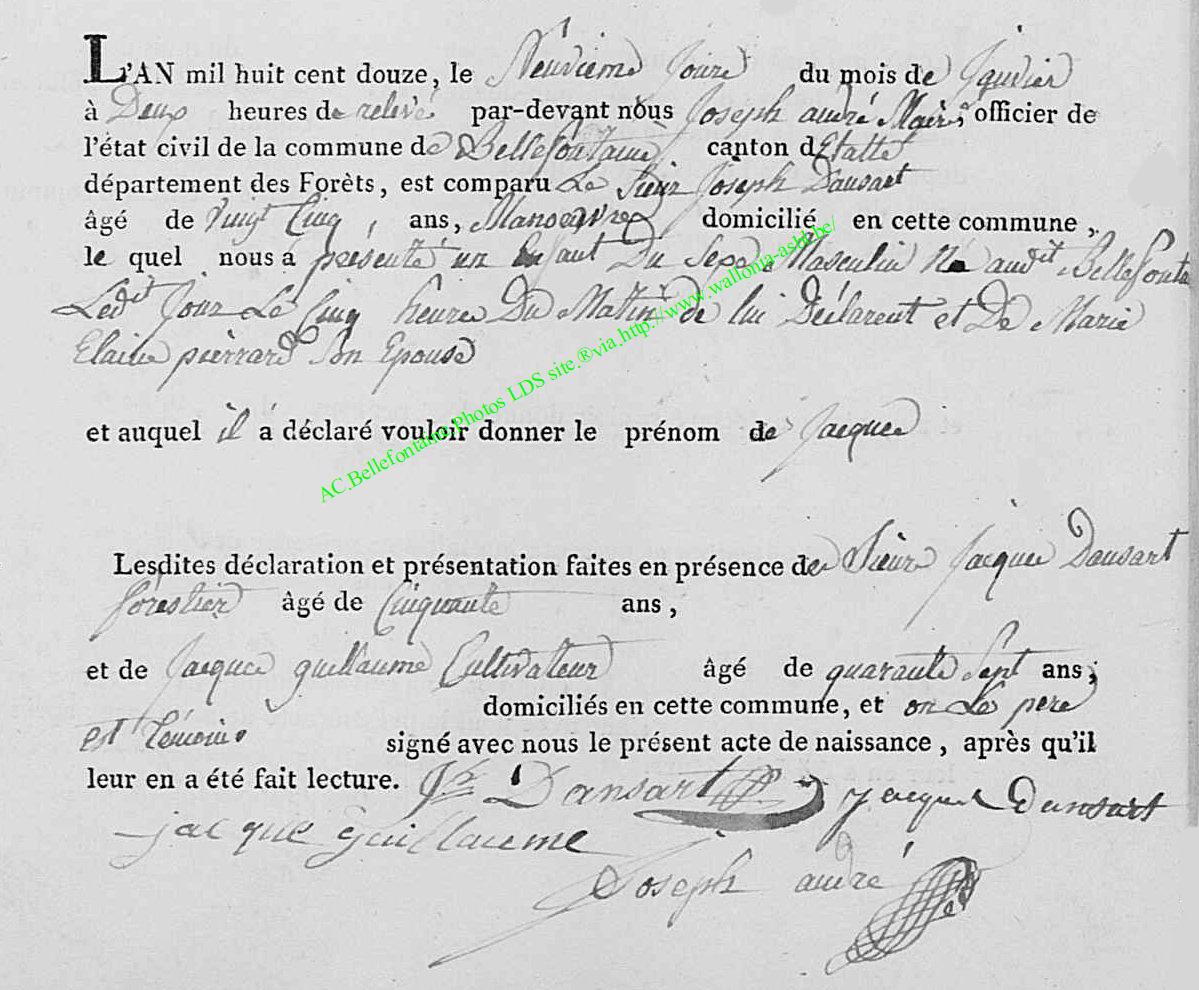 L'AN mil huit cent douze, le Neuvieme Jour du mois de Janvier
à Deux heures de relevé par-devant nous Joseph andré Maire, officier de
l'état civil de la commune de Bellefontaine canton d'Etalle
département des Forèts, est comparu Le Sieur Joseph Dansart
âgé de Vingt Cinq, ans, Manoeuvre domicilié en cette commune,
le quel nous a présenté un Enfant Du Sexe Masculin Né audit Bellefonta
Ledit Jour Le Cinq heures Du Matin de lui Déclarent et De Marie
pierrard Son Epouse
et auquel il a déclaré vouloir donner le prénom de Jacque
Lesdites déclaration et présentation faites en présence de Sieur Jacque Dansart
forestier âgé de Cinquante ans,
et de Jacque guillaume Cultivateur âgé de quarante Sept ans;
domiciliés en cette commune, et on Le pere
est témoins signé avec nous le présent acte de naissance, après qu'il
leur en a été fait lecture. Jh Dansart Jacque Dansart
jacque Guillaume
Joseph andré
AC.Bellefontaine.Photos LDS site.®via.http://www.wallonia-asbl.be/